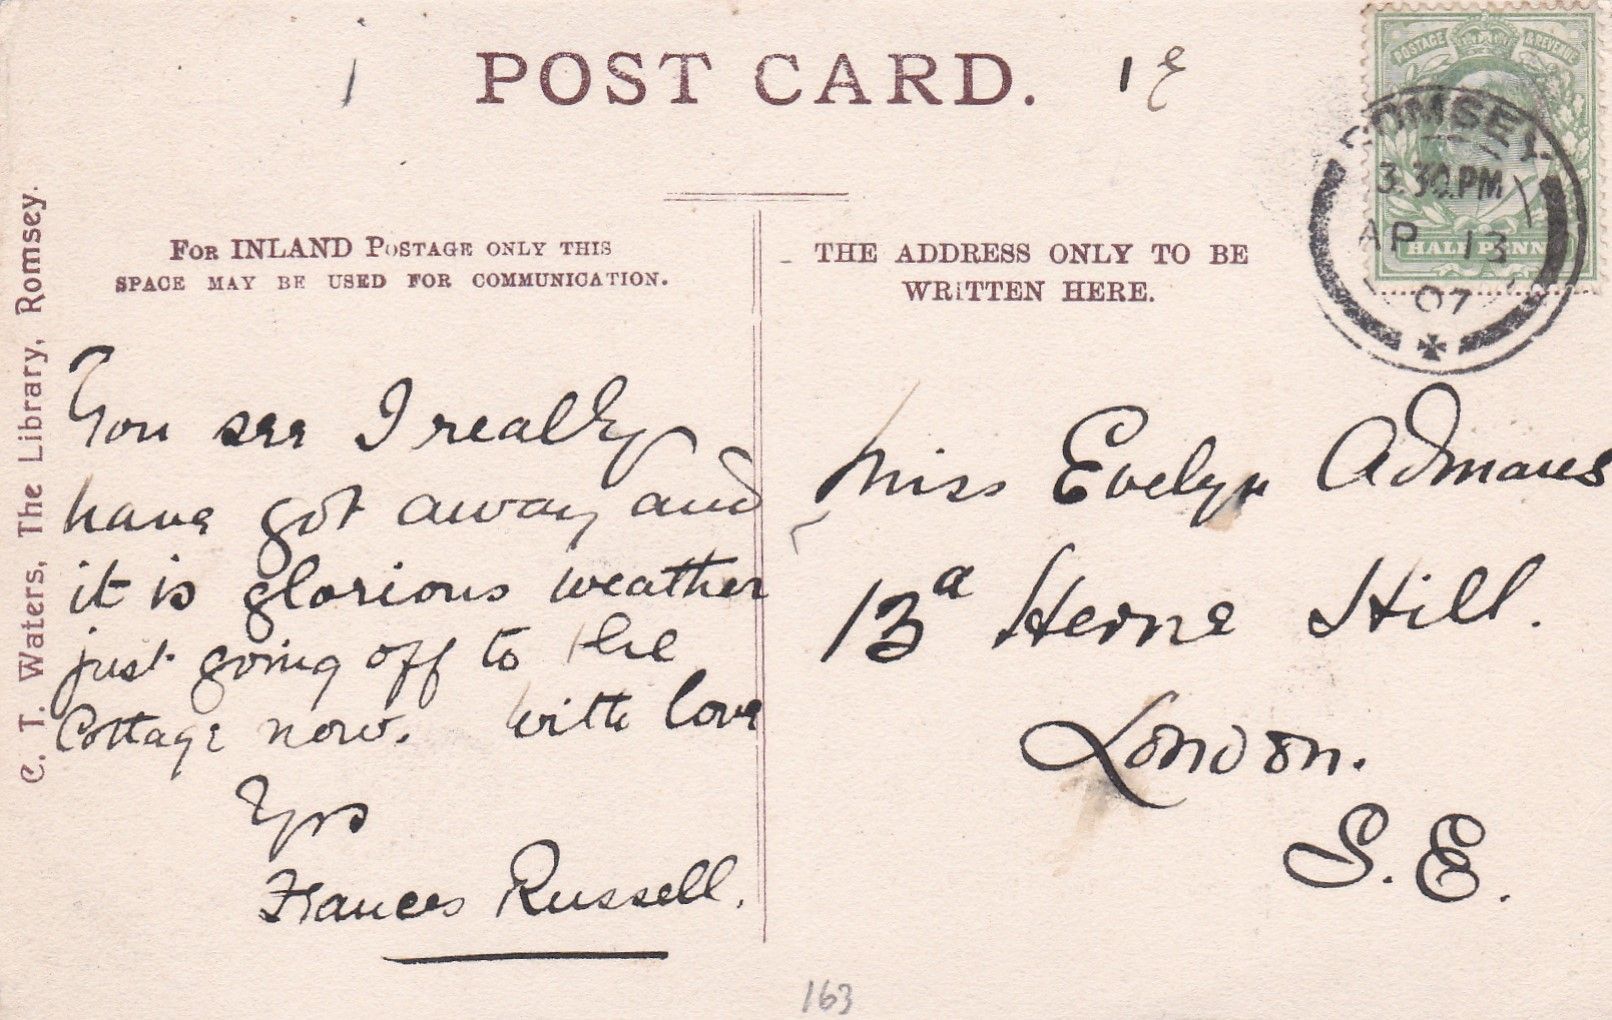 POST CARD.
1 e
POSTAGE & REVENUE
HALFPENNY
ROMSEY
3.30.PM
AP 13
07
C. T. Waters, The Library, Romsey.
FOR INLAND POSTAGE ONLY THIS
SPACE MAY BE USED FOR COMMUNICATION.
THE ADDRESS ONLY TO BE
WRITTEN HERE.
You see I really
have got away and
it is glorious weather
just going off to the
Cottage now. With love
Yrs
Frances Russell.
Miss Evelyn Admans
13a Herne Hill.
London.
S.E.
163